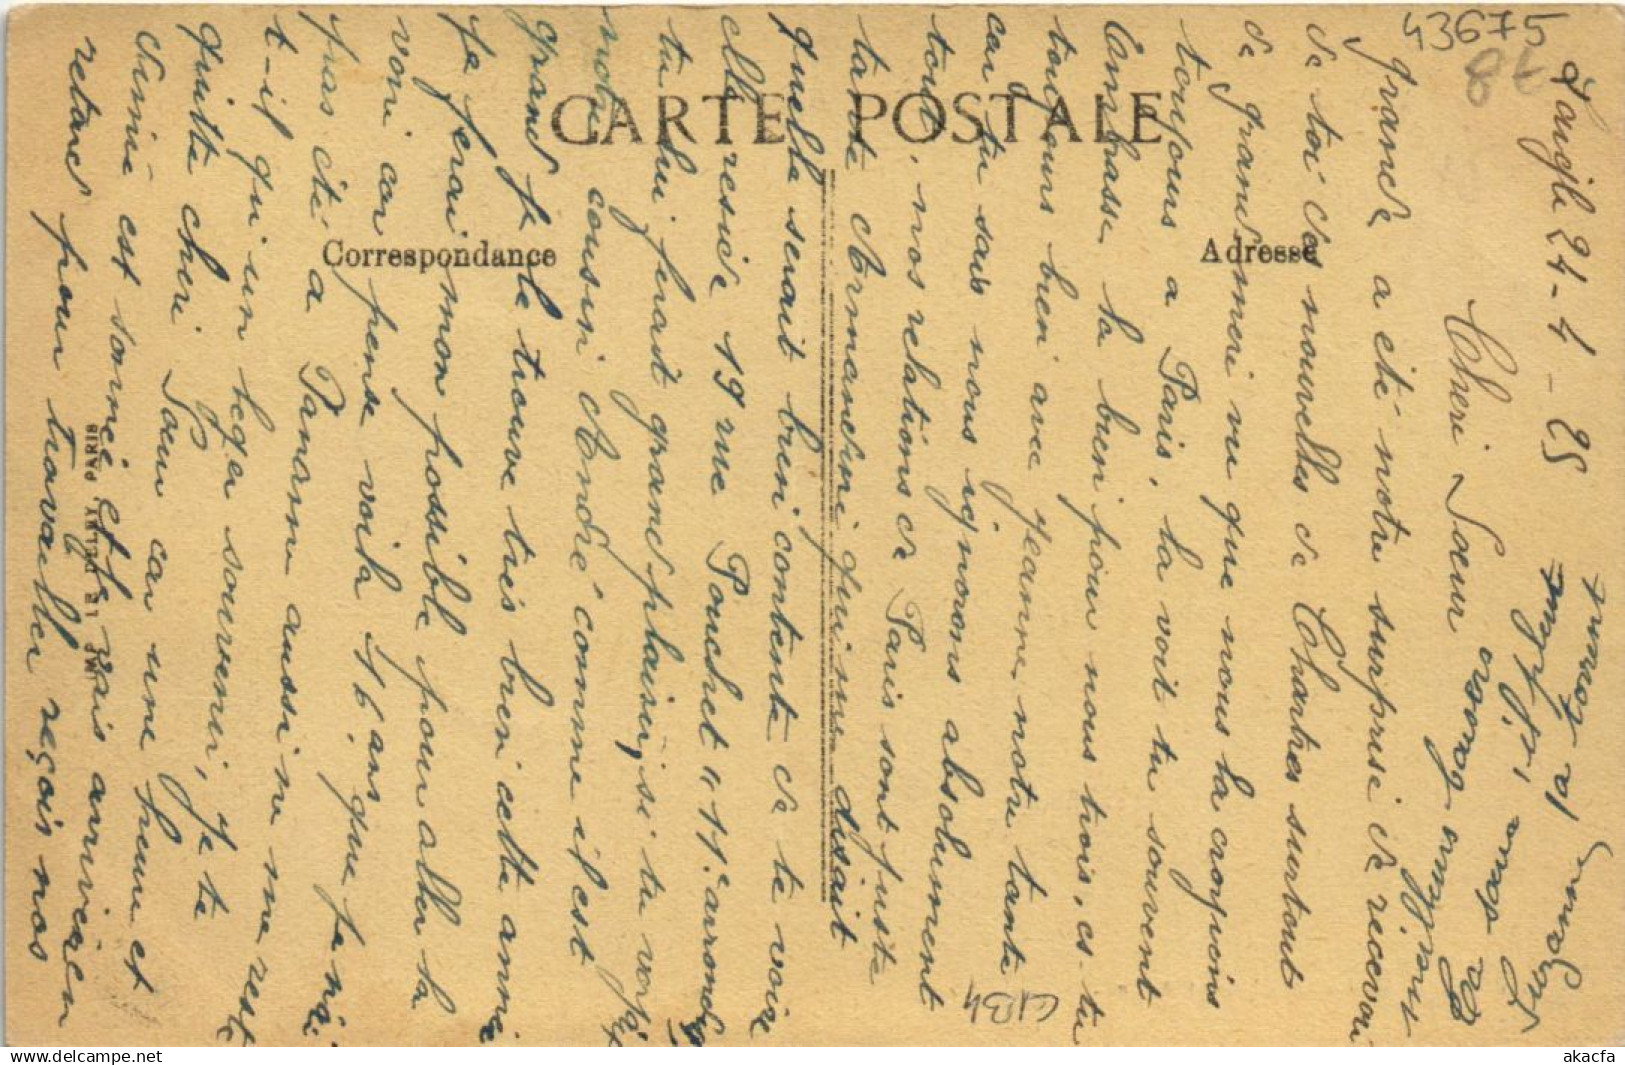 43675
86
CARTE POSTALE
Correspondance
Adresse
Laigle 24-4-25
Cheri Soeur
grande a eté notre surprise de recevoir
de toi des nouvelles de Chartres surtout
de grand meri vu que nous la croyions
toujours a Paris, la voit tu souvent
Embrasse la bien pour nous trois, es tu
toujours bien avec Jeanne notre tante
car tu sais nous ignorons absolument
tout, nos relations de Paris sont juste
tante Armandine qui me disait
quelle serait bien contente de te voire
elle reside 19 rue Pouchet 17e arrond
tu lui ferait grand plaisir, si tu voyé
notre cousin André comme il est
grand je le trouve tres bien cette année
je ferai mon possible pour aller la
voir car pense voila 16 ans que je n'é
pas été a Paname aussi ne me reste
t-il qu'un leger souvenir, je te
quitte cheri Soeur car une heure et
demie est sonné et je vais arrivée en
retard pour travailler reçois nos
Suzanne
IMP. LE DELEY, PARIS
C1B4
akacfa